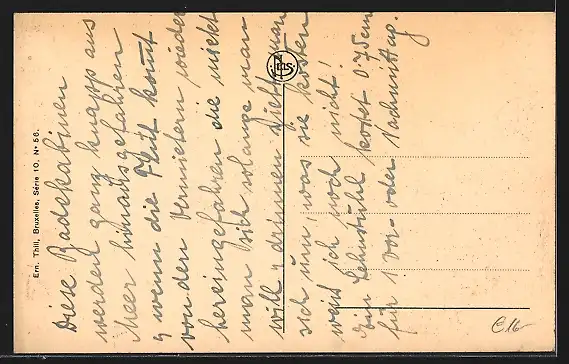 Diese Badekabinen
werden ganz knapp aus
Meer hinausgefahren
u wenn die Flut kommt
von den Vermietern wieder
hereingefahren die mietet
man sich solange man
will, drinnen zieht man
sich um, was sie kosten
weiß ich noch nicht!
Ein Lehnstuhl kostet 0.75 cm
für 1 Vor- oder Nachmittag.
Ern. Thill, Bruxelles, Série 10, No 56.
€16-